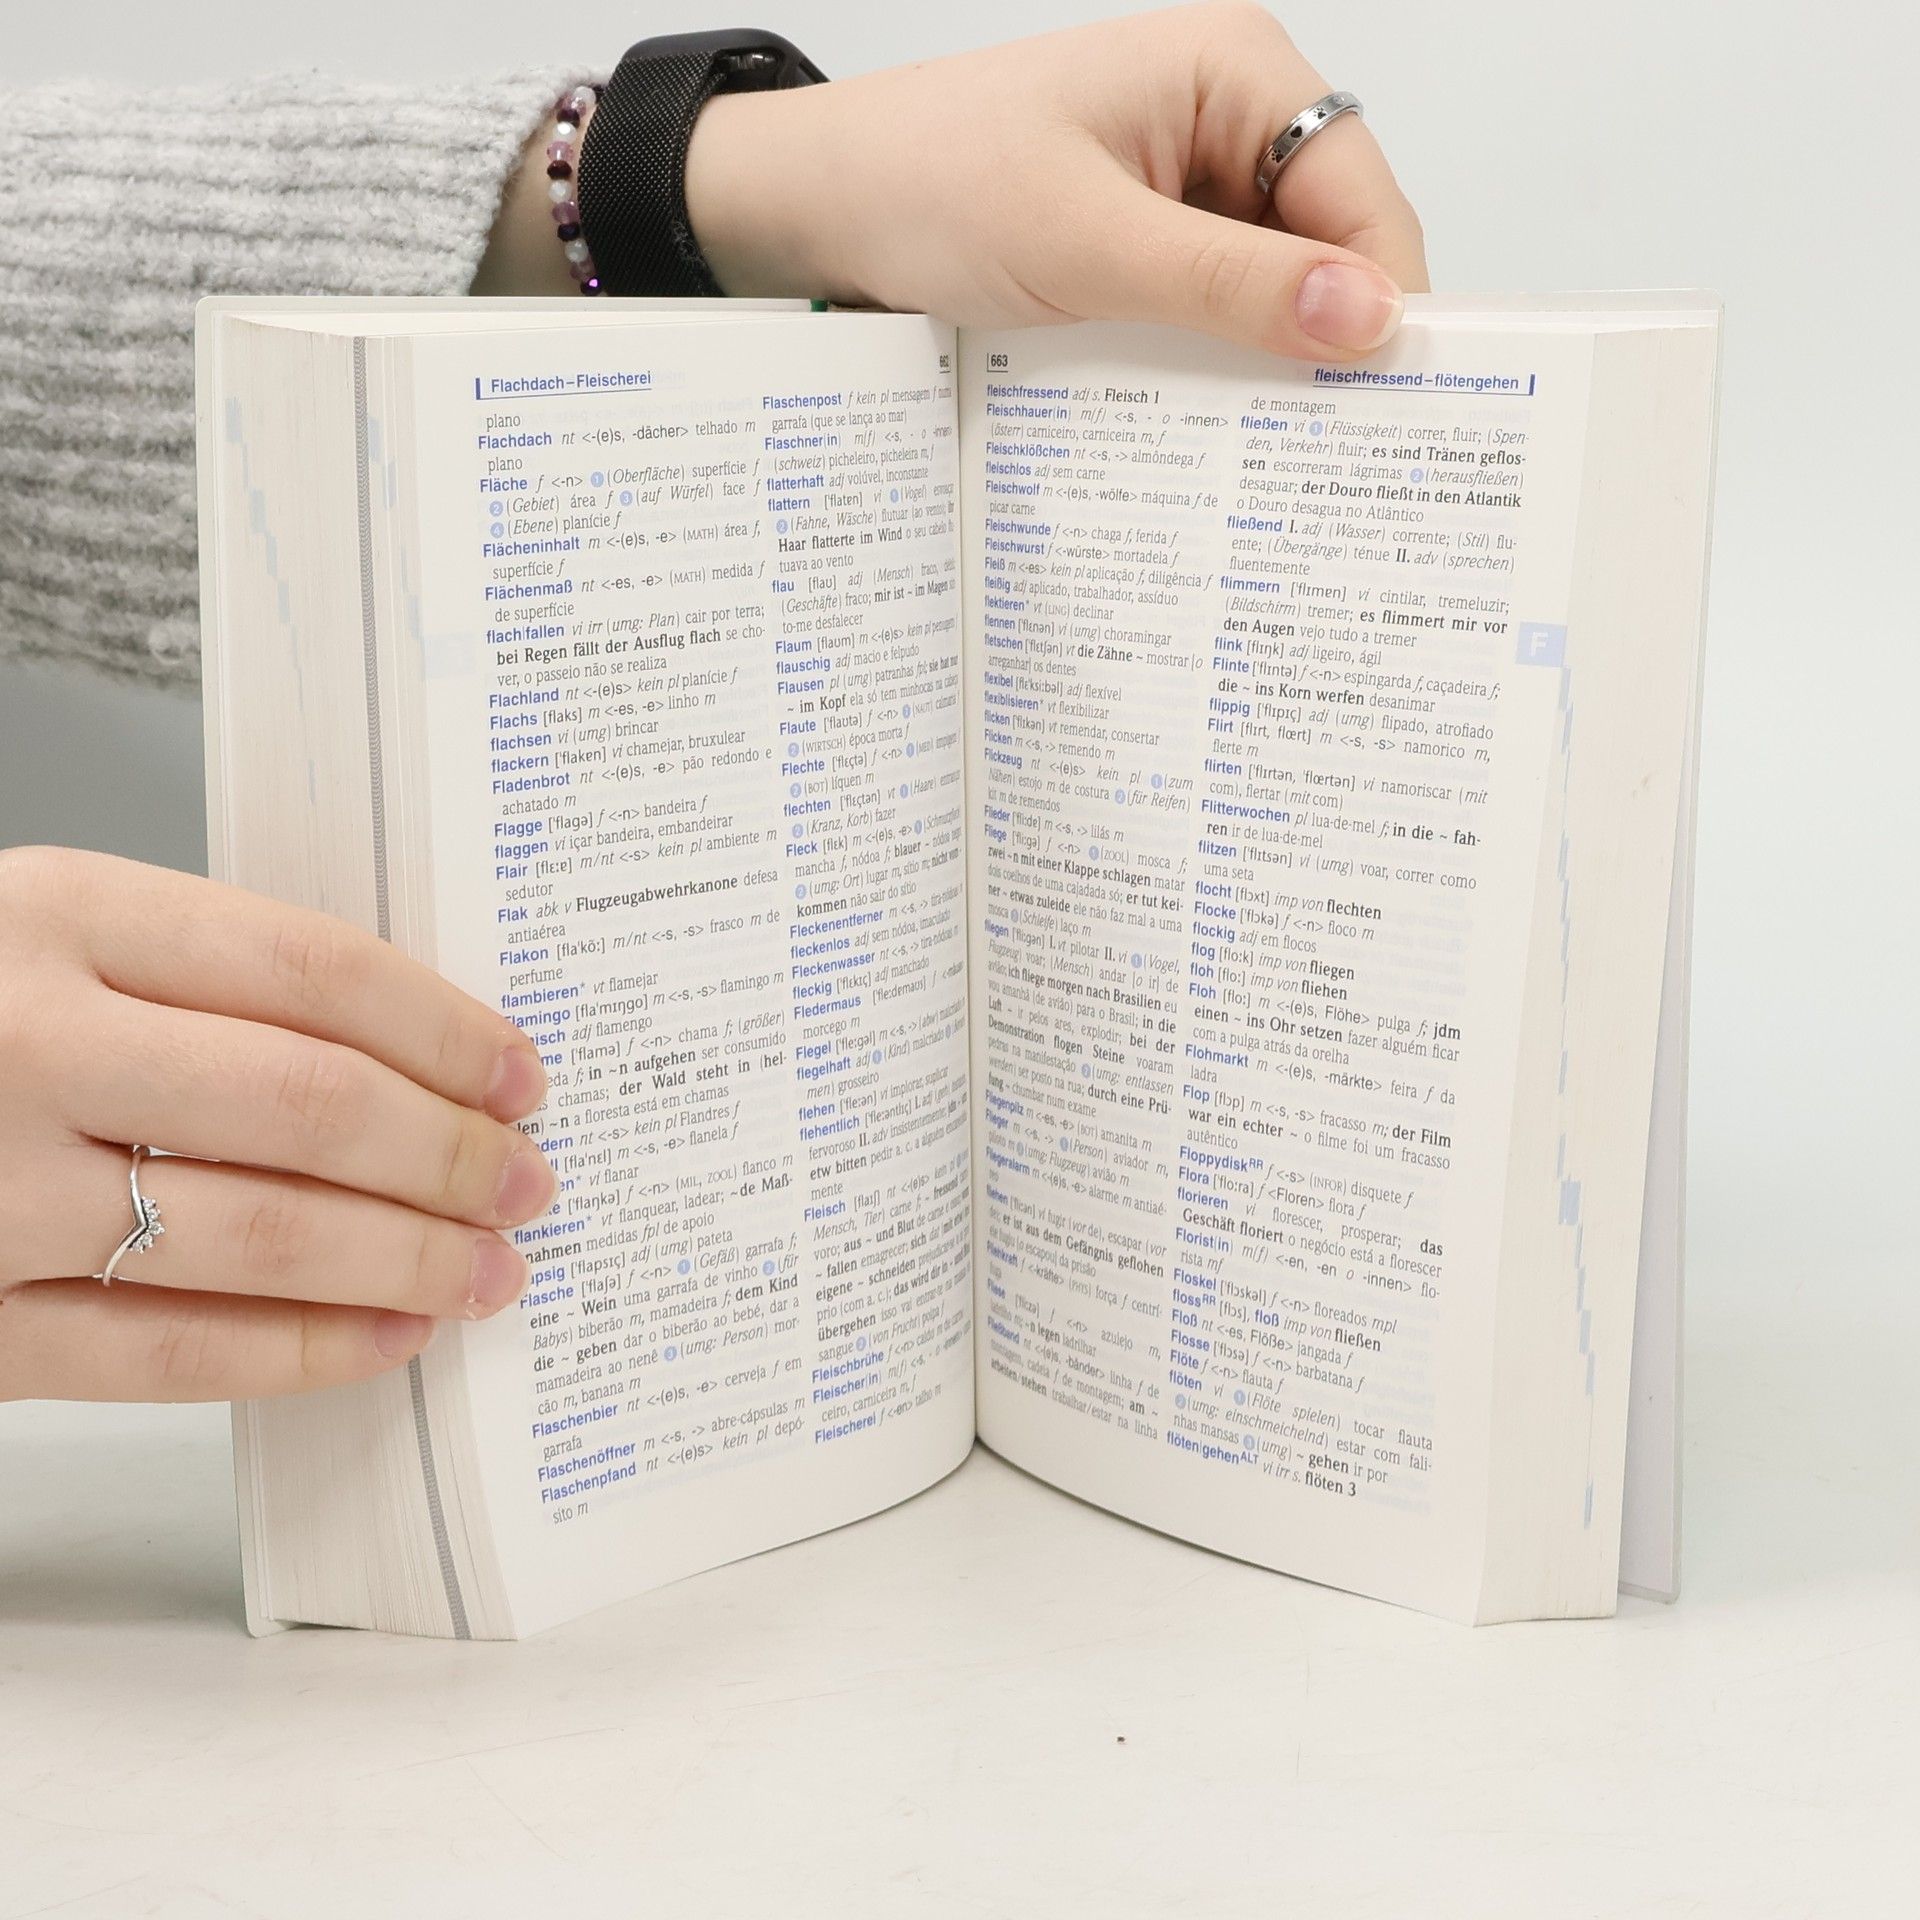 Flachdach–Fleischerei
662
plano
Flachdach nt <-(e)s, -dächer> telhado m
plano
Fläche f <-n> 1 (Oberfläche) superfície f
2 (Gebiet) área f 3 (auf Würfel) face f
4 (Ebene) planície f
Flächeninhalt m <-(e)s, -e> (MATH) área f,
superfície f
Flächenmaß nt <-es, -e> (MATH) medida f
de superfície
flach|fallen vi irr (umg: Plan) cair por terra;
bei Regen fällt der Ausflug flach se cho-
ver, o passeio não se realiza
Flachland nt <-(e)s> kein pl planície f
Flachs [flaks] m <-es, -e> linho m
flachsen vi (umg) brincar
flackern ['flakɐn] vi chamejar, bruxulear
Fladenbrot nt <-(e)s, -e> pão redondo e
achatado m
Flagge ['flagə] f <-n> bandeira f
flaggen vi içar bandeira, embandeirar
Flair [flɛ:ɐ] m/nt <-s> kein pl ambiente m
sedutor
Flak abk v Flugzeugabwehrkanone defesa
antiaérea
Flakon [fla'kõ:] m/nt <-s, -s> frasco m de
perfume
flambieren* vt flamejar
Flamingo [fla'mɪŋgo] m <-s, -s> flamingo m
isch adj flamengo
me ['flamə] f <-n> chama f; (größer)
eda f; in ~n aufgehen ser consumido
chamas; der Wald steht in (hel-
len) ~n a floresta está em chamas
dern nt <-s> kein pl Flandres f
[fla'nɛl] m <-s, -e> flanela f
en* vi flanar
['flaŋkə] f <-n> (MIL, ZOOL) flanco m
flankieren* vt flanquear, ladear; ~de Maß-
nahmen medidas fpl de apoio
psig ['flapsɪç] adj (umg) pateta
Flasche ['flaʃə] f <-n> 1 (Gefäß) garrafa f;
eine ~ Wein uma garrafa de vinho 2 (für
Babys) biberão m, mamadeira f; dem Kind
die ~ geben dar o biberão ao bebé, dar a
mamadeira ao nenê 3 (umg: Person) mor-
cão m, banana m
Flaschenbier nt <-(e)s, -e> cerveja f em
garrafa
Flaschenöffner m <-s, -> abre-cápsulas m
Flaschenpfand nt <-(e)s> kein pl depó-
sito m
Flaschenpost f kein pl mensagem f numa
garrafa (que se lança ao mar)
Flaschner(in) m(f) <-s, - o -innen>
(schweiz) picheleiro, picheleira m, f
flatterhaft adj volúvel, inconstante
flattern ['flatɐn] vi 1 (Vogel) esvoaçar
2 (Fahne, Wäsche) flutuar (ao vento); ihr
Haar flatterte im Wind o seu cabelo flu-
tuava ao vento
flau [flaʊ] adj (Mensch) fraco, débil;
(Geschäfte) fraco; mir ist ~ im Magen
to-me desfalecer
Flaum [flaʊm] m <-(e)s> kein pl penugem f
flauschig adj macio e felpudo
Flausen pl (umg) patranhas fpl; sie hat nur
~ im Kopf ela só tem minhocas na cabeça
Flaute ['flaʊtə] f <-n> 1 (NAUT) calmaria f
2 (WIRTSCH) época morta f
Flechte ['flɛçtə] f <-n> 1 (MED) impigem f
2 (BOT) líquen m
flechten ['flɛçtən] vt 1 (Haare) entrançar
2 (Kranz, Korb) fazer
Fleck [flɛk] m <-(e)s, -e> 1 (Schmutzfleck)
mancha f, nódoa f; blauer ~ nódoa negra
2 (umg: Ort) lugar m, sítio m; nicht vom ~
kommen não sair do sítio
Fleckenentferner m <-s, -> tira-nódoas m
fleckenlos adj sem nódoa, imaculado
Fleckenwasser nt <-s, -> tira-nódoas m
fleckig ['flɛkɪç] adj manchado
Fledermaus ['fle:dɐmaʊs] f <-mäuse>
morcego m
Flegel ['fle:gəl] m <-s, -> (abw) malcriado m
flegelhaft adj 1 (Kind) malcriado
men) grosseiro
flehen ['fle:ən] vi implorar, suplicar
flehentlich ['fle:əntlɪç] I. adj
fervoroso II. adv insistentemente;
etw bitten pedir a. c. a alguém
mente
Fleisch [flaɪʃ] nt <-(e)s> kein pl
Mensch, Tier) carne f; ~ fressend carní-
voro; aus ~ und Blut de carne e osso; vom
~ fallen emagrecer; sich
eigene ~ schneiden
prio (com a. c.); das wird dir in ~ und Blut
übergehen isso vai entrar-te na massa do
sangue 2 (von Frucht) polpa f
Fleischbrühe f <-n> caldo m de carne
Fleischer(in) m(f) <-s, - o -innen>
ceiro, carniceira m, f
Fleischerei f <-en> talho m
663
fleischfressend–flötengehen
fleischfressend adj s. Fleisch 1
Fleischhauer(in) m(f) <-s, - o -innen>
(österr) carniceiro, carniceira m, f
Fleischklößchen nt <-s, -> almôndega f
fleischlos adj sem carne
Fleischwolf m <-(e)s, -wölfe> máquina f de
picar carne
Fleischwunde f <-n> chaga f, ferida f
Fleischwurst f <-würste> mortadela f
Fleiß m <-es> kein pl aplicação f, diligência f
fleißig adj aplicado, trabalhador, assíduo
flektieren* vt (LING) declinar
flennen ['flɛnən] vi (umg) choramingar
fletschen ['flɛtʃən] vt die Zähne ~ mostrar |o
arreganhar| os dentes
flexibel [flɛ'ksi:bəl] adj flexível
flexibilisieren* vt flexibilizar
flicken ['flɪkən] vt remendar, consertar
Flicken m <-s, -> remendo m
Flickzeug nt <-(e)s> kein pl 1 (zum
Nähen) estojo m de costura 2 (für Reifen)
kit m de remendos
Flieder ['fli:dɐ] m <-s, -> lilás m
Fliege ['fli:gə] f <-n> 1 (ZOOL) mosca f;
zwei ~n mit einer Klappe schlagen matar
dois coelhos de uma cajadada só; er tut kei-
ner ~ etwas zuleide ele não faz mal a uma
mosca 2 (Schleife) laço m
fliegen ['fli:gən] I. vt pilotar II. vi 1 (Vogel,
Flugzeug) voar; (Mensch) andar |o ir| de
avião; ich fliege morgen nach Brasilien eu
vou amanhã (de avião) para o Brasil; in die
Luft ~ ir pelos ares, explodir; bei der
Demonstration flogen Steine voaram
pedras na manifestação 2 (umg: entlassen
werden) ser posto na rua; durch eine Prü-
fung ~ chumbar num exame
Fliegenpilz m <-es, -e> (BOT) amanita m
Flieger m <-s, -> 1 (Person) aviador m,
piloto m 2 (umg: Flugzeug) avião m
Fliegeralarm m <-(e)s, -e> alarme m antiaé-
reo
fliehen ['fli:ən] vi fugir (vor de), escapar (vor
de); er ist aus dem Gefängnis geflohen
ele fugiu (o escapou) da prisão
Fliehkraft f <-kräfte> (PHYS) força f centrí-
fuga
Fliese ['fli:zə] f <-n> azulejo m,
ladrilho m; ~n legen ladrilhar
Fließband nt <-(e)s, -bänder> linha f de
montagem, cadeia f de montagem; am ~
arbeiten/stehen trabalhar/estar na linha
de montagem
fließen vi 1 (Flüssigkeit) correr, fluir; (Spen-
den, Verkehr) fluir; es sind Tränen geflos-
sen escorreram lágrimas 2 (herausfließen)
desaguar; der Douro fließt in den Atlantik
o Douro desagua no Atlântico
fließend I. adj (Wasser) corrente; (Stil) flu-
ente; (Übergänge) ténue II. adv (sprechen)
fluentemente
flimmern ['flɪmɐn] vi cintilar, tremeluzir;
(Bildschirm) tremer; es flimmert mir vor
den Augen vejo tudo a tremer
flink [flɪŋk] adj ligeiro, ágil
Flinte ['flɪntə] f <-n> espingarda f, caçadeira f;
die ~ ins Korn werfen desanimar
flippig ['flɪpɪç] adj (umg) flipado, atrofiado
Flirt [flɪrt, flœrt] m <-s, -s> namorico m,
flerte m
flirten ['flɪrtən, 'flœrtən] vi namoriscar (mit
com), flertar (mit com)
Flitterwochen pl lua-de-mel f; in die ~ fah-
ren ir de lua-de-mel
flitzen ['flɪtsən] vi (umg) voar, correr como
uma seta
flocht [flɔxt] imp von flechten
Flocke ['flɔkə] f <-n> floco m
flockig adj em flocos
flog [flo:k] imp von fliegen
floh [flo:] imp von fliehen
Floh [flo:] m <-(e)s, Flöhe> pulga f; jdm
einen ~ ins Ohr setzen fazer alguém ficar
com a pulga atrás da orelha
Flohmarkt m <-(e)s, -märkte> feira f da
ladra
Flop [flɔp] m <-s, -s> fracasso m; der Film
war ein echter ~ o filme foi um fracasso
autêntico
Floppydisk RR f <-s> (INFOR) disquete f
Flora ['flo:ra] f <Floren> flora f
florieren vi florescer, prosperar; das
Geschäft floriert o negócio está a florescer
Florist(in) m(f) <-en, -en o -innen> flo-
rista mf
Floskel ['flɔskəl] f <-n> floreados mpl
floss RR [flɔs], floß imp von fließen
Floß nt <-es, Flöße> jangada f
Flosse ['flɔsə] f <-n> barbatana f
Flöte f <-n> flauta f
flöten vi 1 (Flöte spielen) tocar flauta
2 (umg: einschmeichelnd) estar com fali-
nhas mansas 3 (umg) ~ gehen ir por
flöten|gehen ALT vi irr s. flöten 3
F